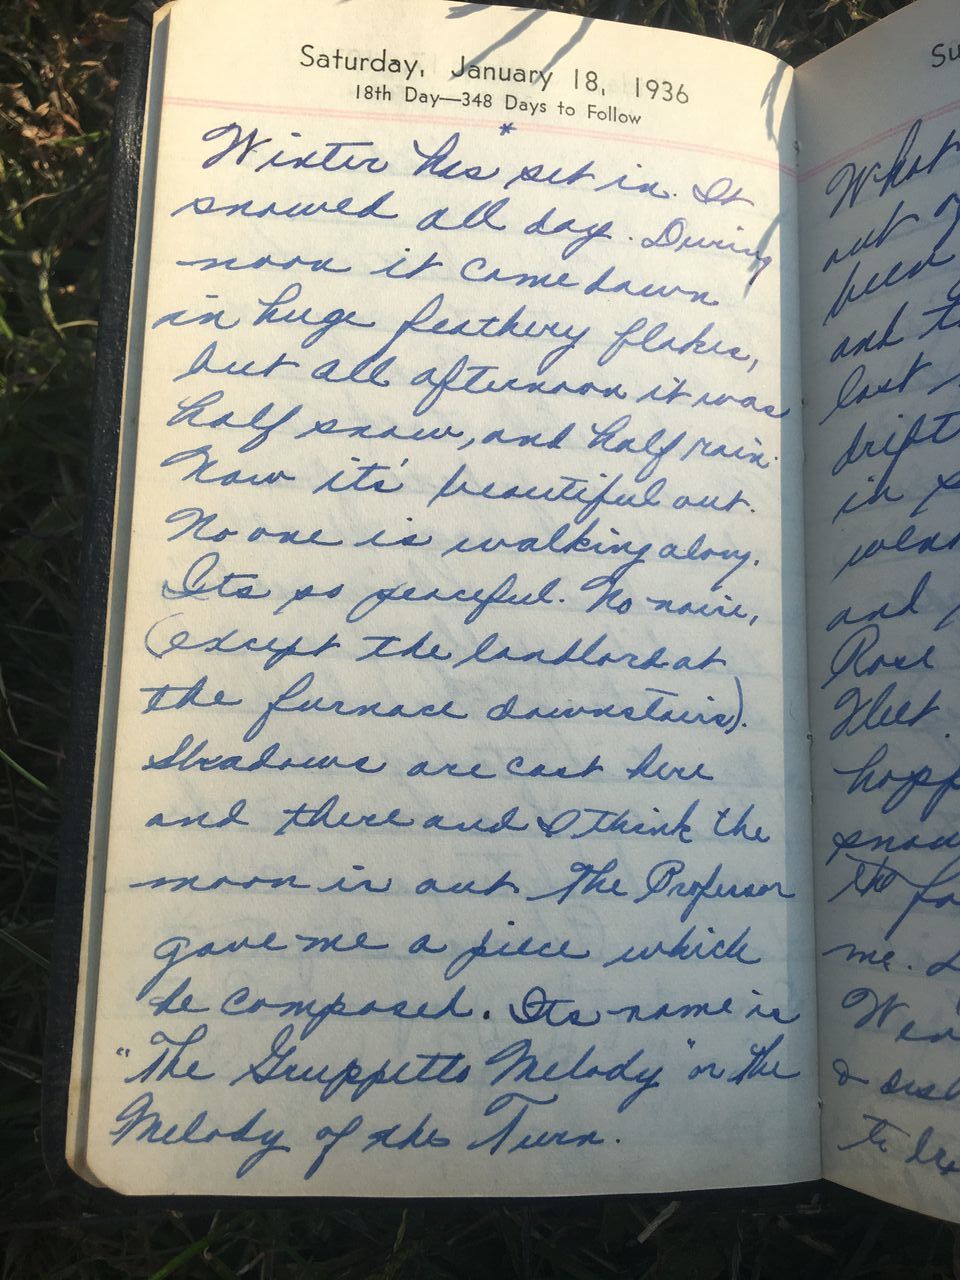 Saturday, January 18, 1936
18th Day—348 Days to Follow
*
Winter has set in. It
snowed all day. During
noon it came down
in huge feathery flakes,
but all afternoon it was
half snow, and half rain.
Now its' beautiful out.
No one is walking along.
Its so peaceful. No noise,
(except the landlord at
the furnace downstairs).
Shadows are cast here
and there and I think the
moon is out. The Professor
gave me a piece which
he composed. Its name is
"The Gruppetto Melody" or the
Melody of the Turn.
Su
What
out
been
and
last
drift
in
and
Rose
Fleet
happ
snow
me.
to